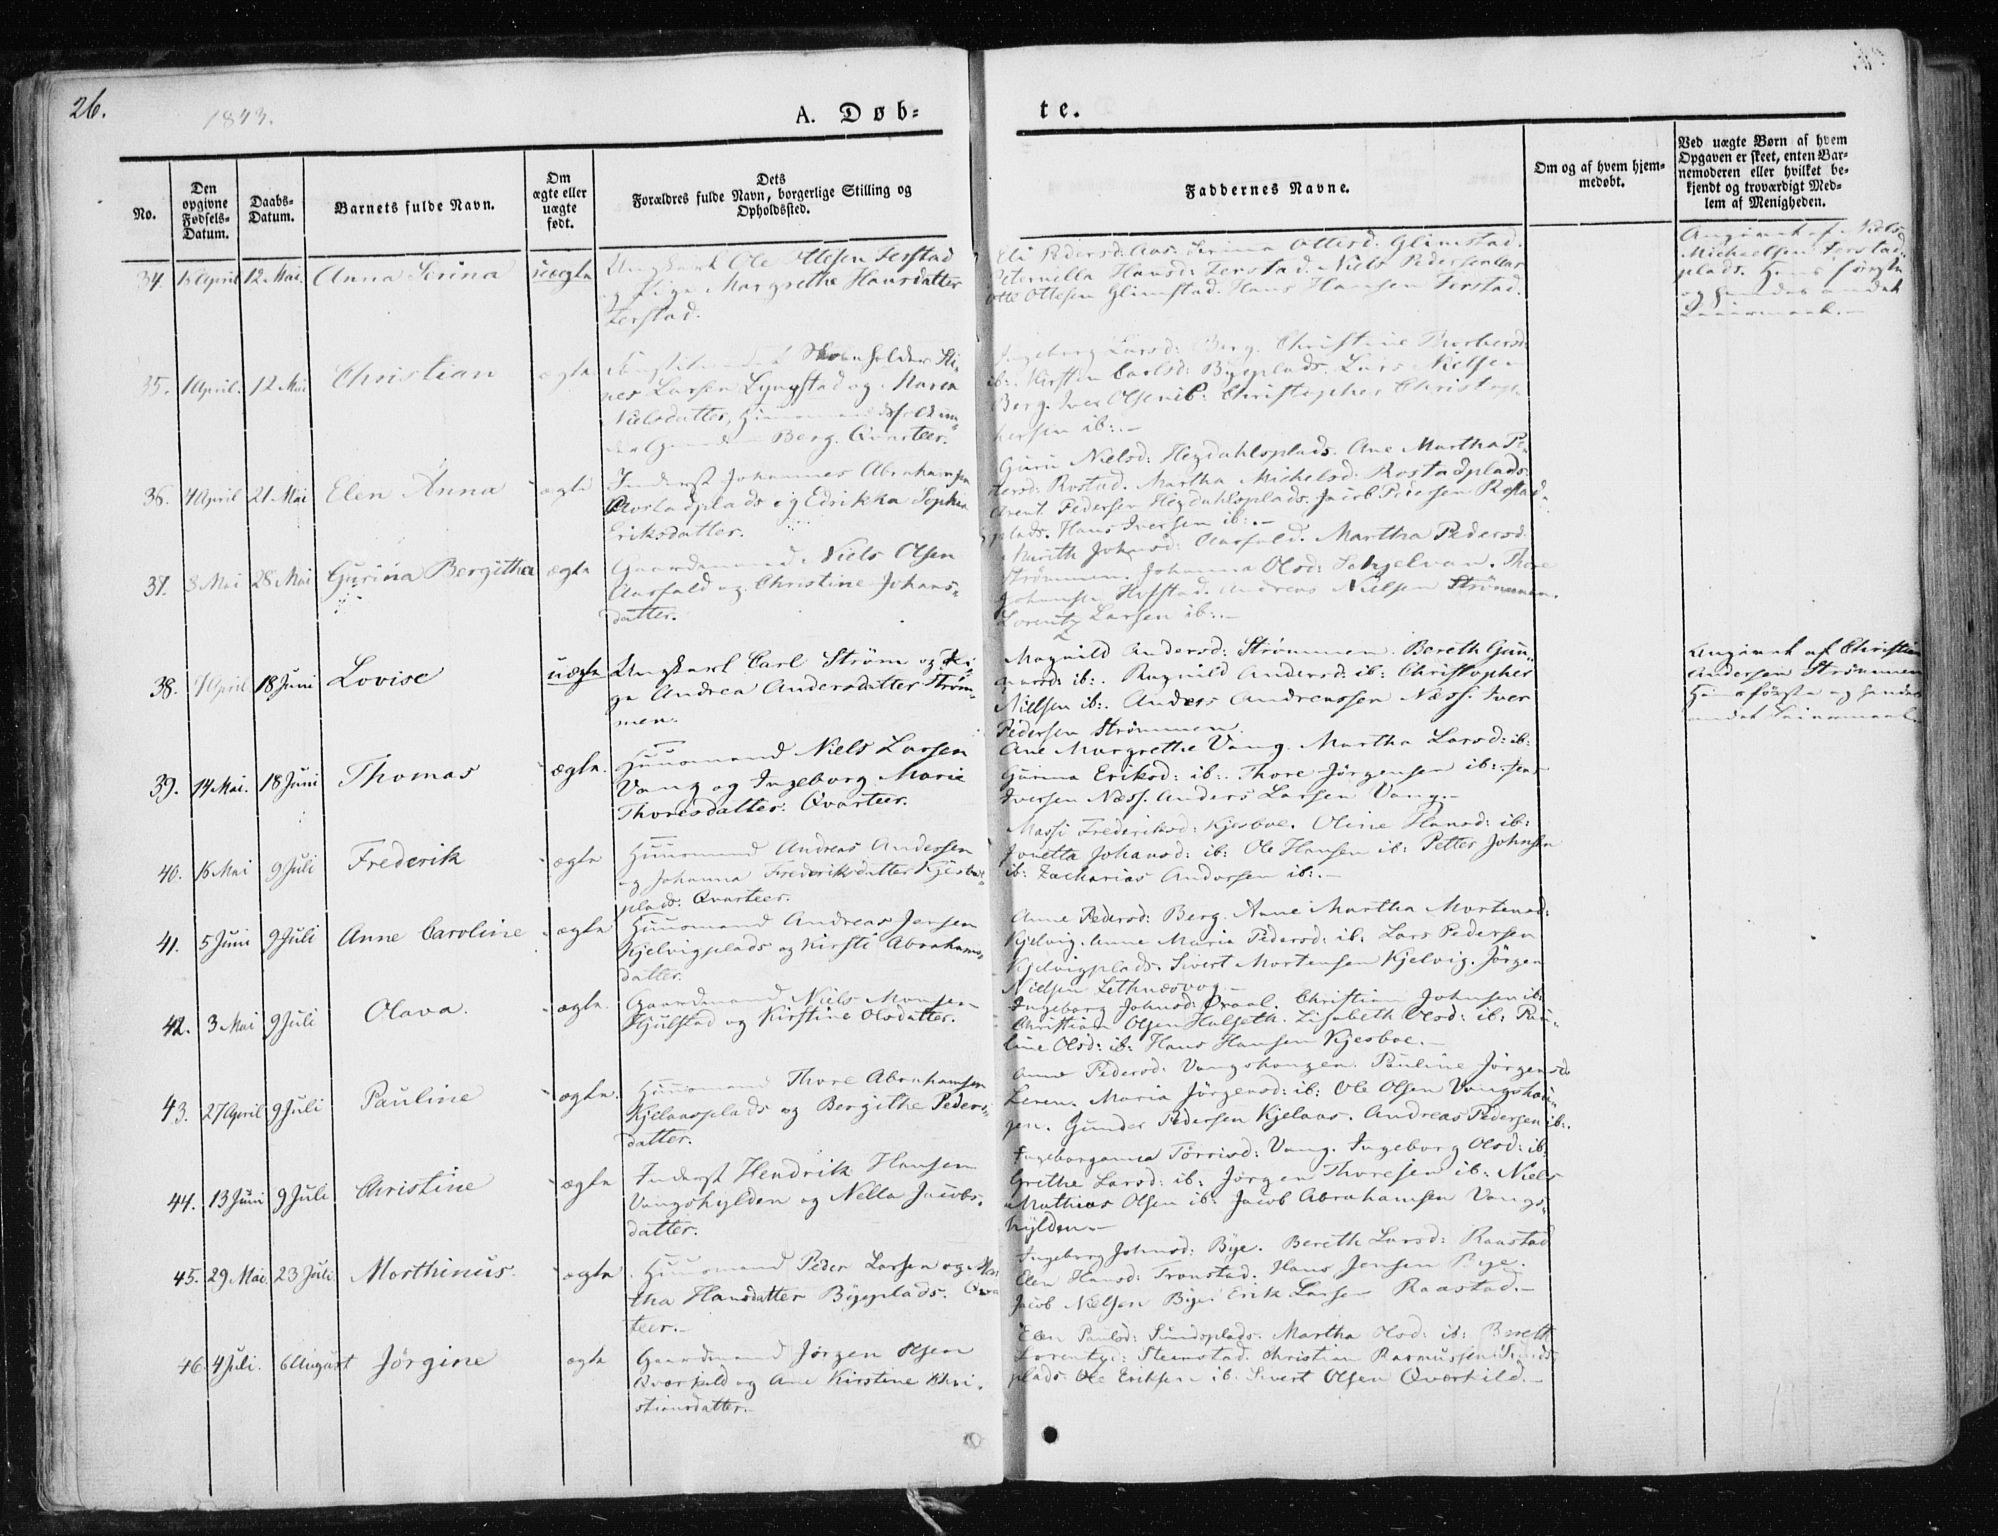 26.
1843.
A. Døb-
te.
No.
Den opgivne Fødsels-Datum.
Daabs-Datum.
Barnets fulde Navn.
Om ægte eller uægte født.
Dets Forældres fulde Navn, borgerlige Stilling og Opholdssted.
Faddernes Navne.
Om og af hvem hjem-medøbt.
Ved uægte Børn af hvem Opgaven er skeet, enten Bar-nemoderen eller hvilket be-kjendt og troværdigt Med-lem af Menigheden.
34. 13 April 12 Mai. Anna Serina uægte
Ungkarl Ole Ottesen Ferstad
og Pige Margrethe Hansdatter
Ferstad.
Eli Pedersd: Aas. Serina Ottesd: Glimstad.
Peternilla Hansd: Ferstad. Niels Pedersen Aas
Otte Ottesen Glimstad. Hans Hansen Ferstad.
Angivet af Niels
Michaelsen Ferstad-
plads. Hans første
og hendes andet
Leiermaal.-
35. 1 April. 12 Mai Christian ægte
Sti-
nes Larsen Lyngstad og Maren
Nielsdatter,
Berg. Qvarteer.
Ingeborg Larsd: Berg. Christine
ib:. Kirsten Carlsd: Byeplads. Lars Nielsen
Berg. Iver Olsen ib: Christopher Christop-
hersen ib:.-
36. 4 April 21 Mai Elen Anna ægte
Inderst Johannes Abrahamsen
Rostadplads og Edrikka Sophia
Eriksdatter.
Guru Nielsd: Hegdahlsplads. Ane Martha Pe-
tersd: Rostad. Martha Michelsd: Rostadplads.
Arent Pedersen Hegdahlsplads. Jacob Petersen Rostad-
plads. Hans Iversen ib:.-
37. 3 Mai 28 Mai Gurina Bergitha ægte
Gaardmand Niels Olsen
Aasfald og Christine Johans-
datter.
Marith Johnsd: Aasfald. Martha Pedersd:
Strømmen. Johanna Olsd: Thore
Johansen Hofstad. Andreas Nielsen Strømmen.
Lorentz Larsen ib:.-
38. 7 April 18 Juni Lovise uægte
Ungkarl Carl Strøm og Pi-
ge Andrea Andersdatter Strøm-
men.
Magnild Andersd: Strømmen. Bereth Gun-
narsd: ib:. Ragnild Andersd: ib: Christopher
Nielsen ib:. Anders Andreassen Næss. Iver
Pedersen Strømmen.
Angivet af Christian
Andersen Strømmen
Hans første og hendes
andet Leiermaal.
39. 14 Mai. 18 Juni Thomas ægte.
Huusmand Niels Larsen
Vang og Ingeborg Marie
Thoresdatter. Qvarteer.
Ane Margrethe Vang. Martha Larsd: ib:
Gurina Eriksd: ib:. Thore Jørgensen ib:. Jens
Iversen Næss. Anders Larsen Vang.-
40. 16 Mai 9 Juli Frederik ægte
Huusmand Andreas Andersen
og Johanna Frederiksdatter Kjesboe-
plads: Qvarteer.
Massi Frederiksd: Kjesboe. Oline Hansd: ib:
Jonetta Johansd: ib: Ole Hansen ib: Petter Johnsen
ib: Zacharias Andersen ib:.-
41. 5 Juni 9 Juli Anne Caroline ægte
Huusmand Andreas Jensen
Kjelvigplads og Kirsti Abrahams-
datter.
Anne Pedersd: Berg. Anne Martha Mortensd:
Kjelvig. Anne Maria Pedersd: ib: Lars Pedersen
Kjelvigplads. Sivert Mortensen Kjelvig. Jörgen
Nielsen Lethnæsvog.-
42. 3 Mai 9 Juli Olava. ægte.
Gaardmand Niels Monsen
Hjulstad og Kirstine Olsdatter.
Ingeborg Johnsd: Christian Johnsen ib:
Christian Olsen Hulseth. Lisabeth Olsd: ib: Pau-
line Olsd: ib: Hans Hansen Kjesboe.-
43. 27 April 9 Juli Pauline ægte.
Huusmand Thore Abrahamsen
Kjelaasplads og Bergithe Peders-
datter.
Anne Pedersd: Vangshougen. Pauline Jørgensd:
Leren. Maria Jörgensd: ib: Ole Olsen Vangshou-
gen. Gunder Pedersen Kjelaas. Andreas Pedersen ib:.
44. 13 Juni 9 Juli Christine ægte
Inderst Hendrik Hansen
Vangshylden og Nella Jacobs-
datter.
Ingeboranna Torrisd: Vang. Ingeborg Olsd: ib:
Grethe Larsd: ib: Jørgen Thoresen ib: Niels
Mathias Olsen ib: Jacob Abrahamsen Vangs-
hylden.-
45. 29 Mai 23 Juli. Morthinus. ægte
Huusmand Peder Larsen og Mar-
tha Hansdatter Byeplads. Qvar-
teer.-
Ingeborg Johnsd: Bye. Bereth Larsd: Raastad
Elen Hansd: Tronstad. Hans Jensen Bye.
Jacob Nielsen Bye. Erik Larsen Raastad.-
46. 4 Juli. 6 August Jörgine ægte
Gaardmand Jörgen Olsen
Qværkild og Ane Kirstine Chri-
stiansdatter.-
Elen Paulsd: Sundsplads. Martha Olsd: ib: Bereth
Lorentzd: Steenstad. Christian Rasmussen Sunds-
plads. Ole Eriksen ib. Sivert Olsen Qværkild.-